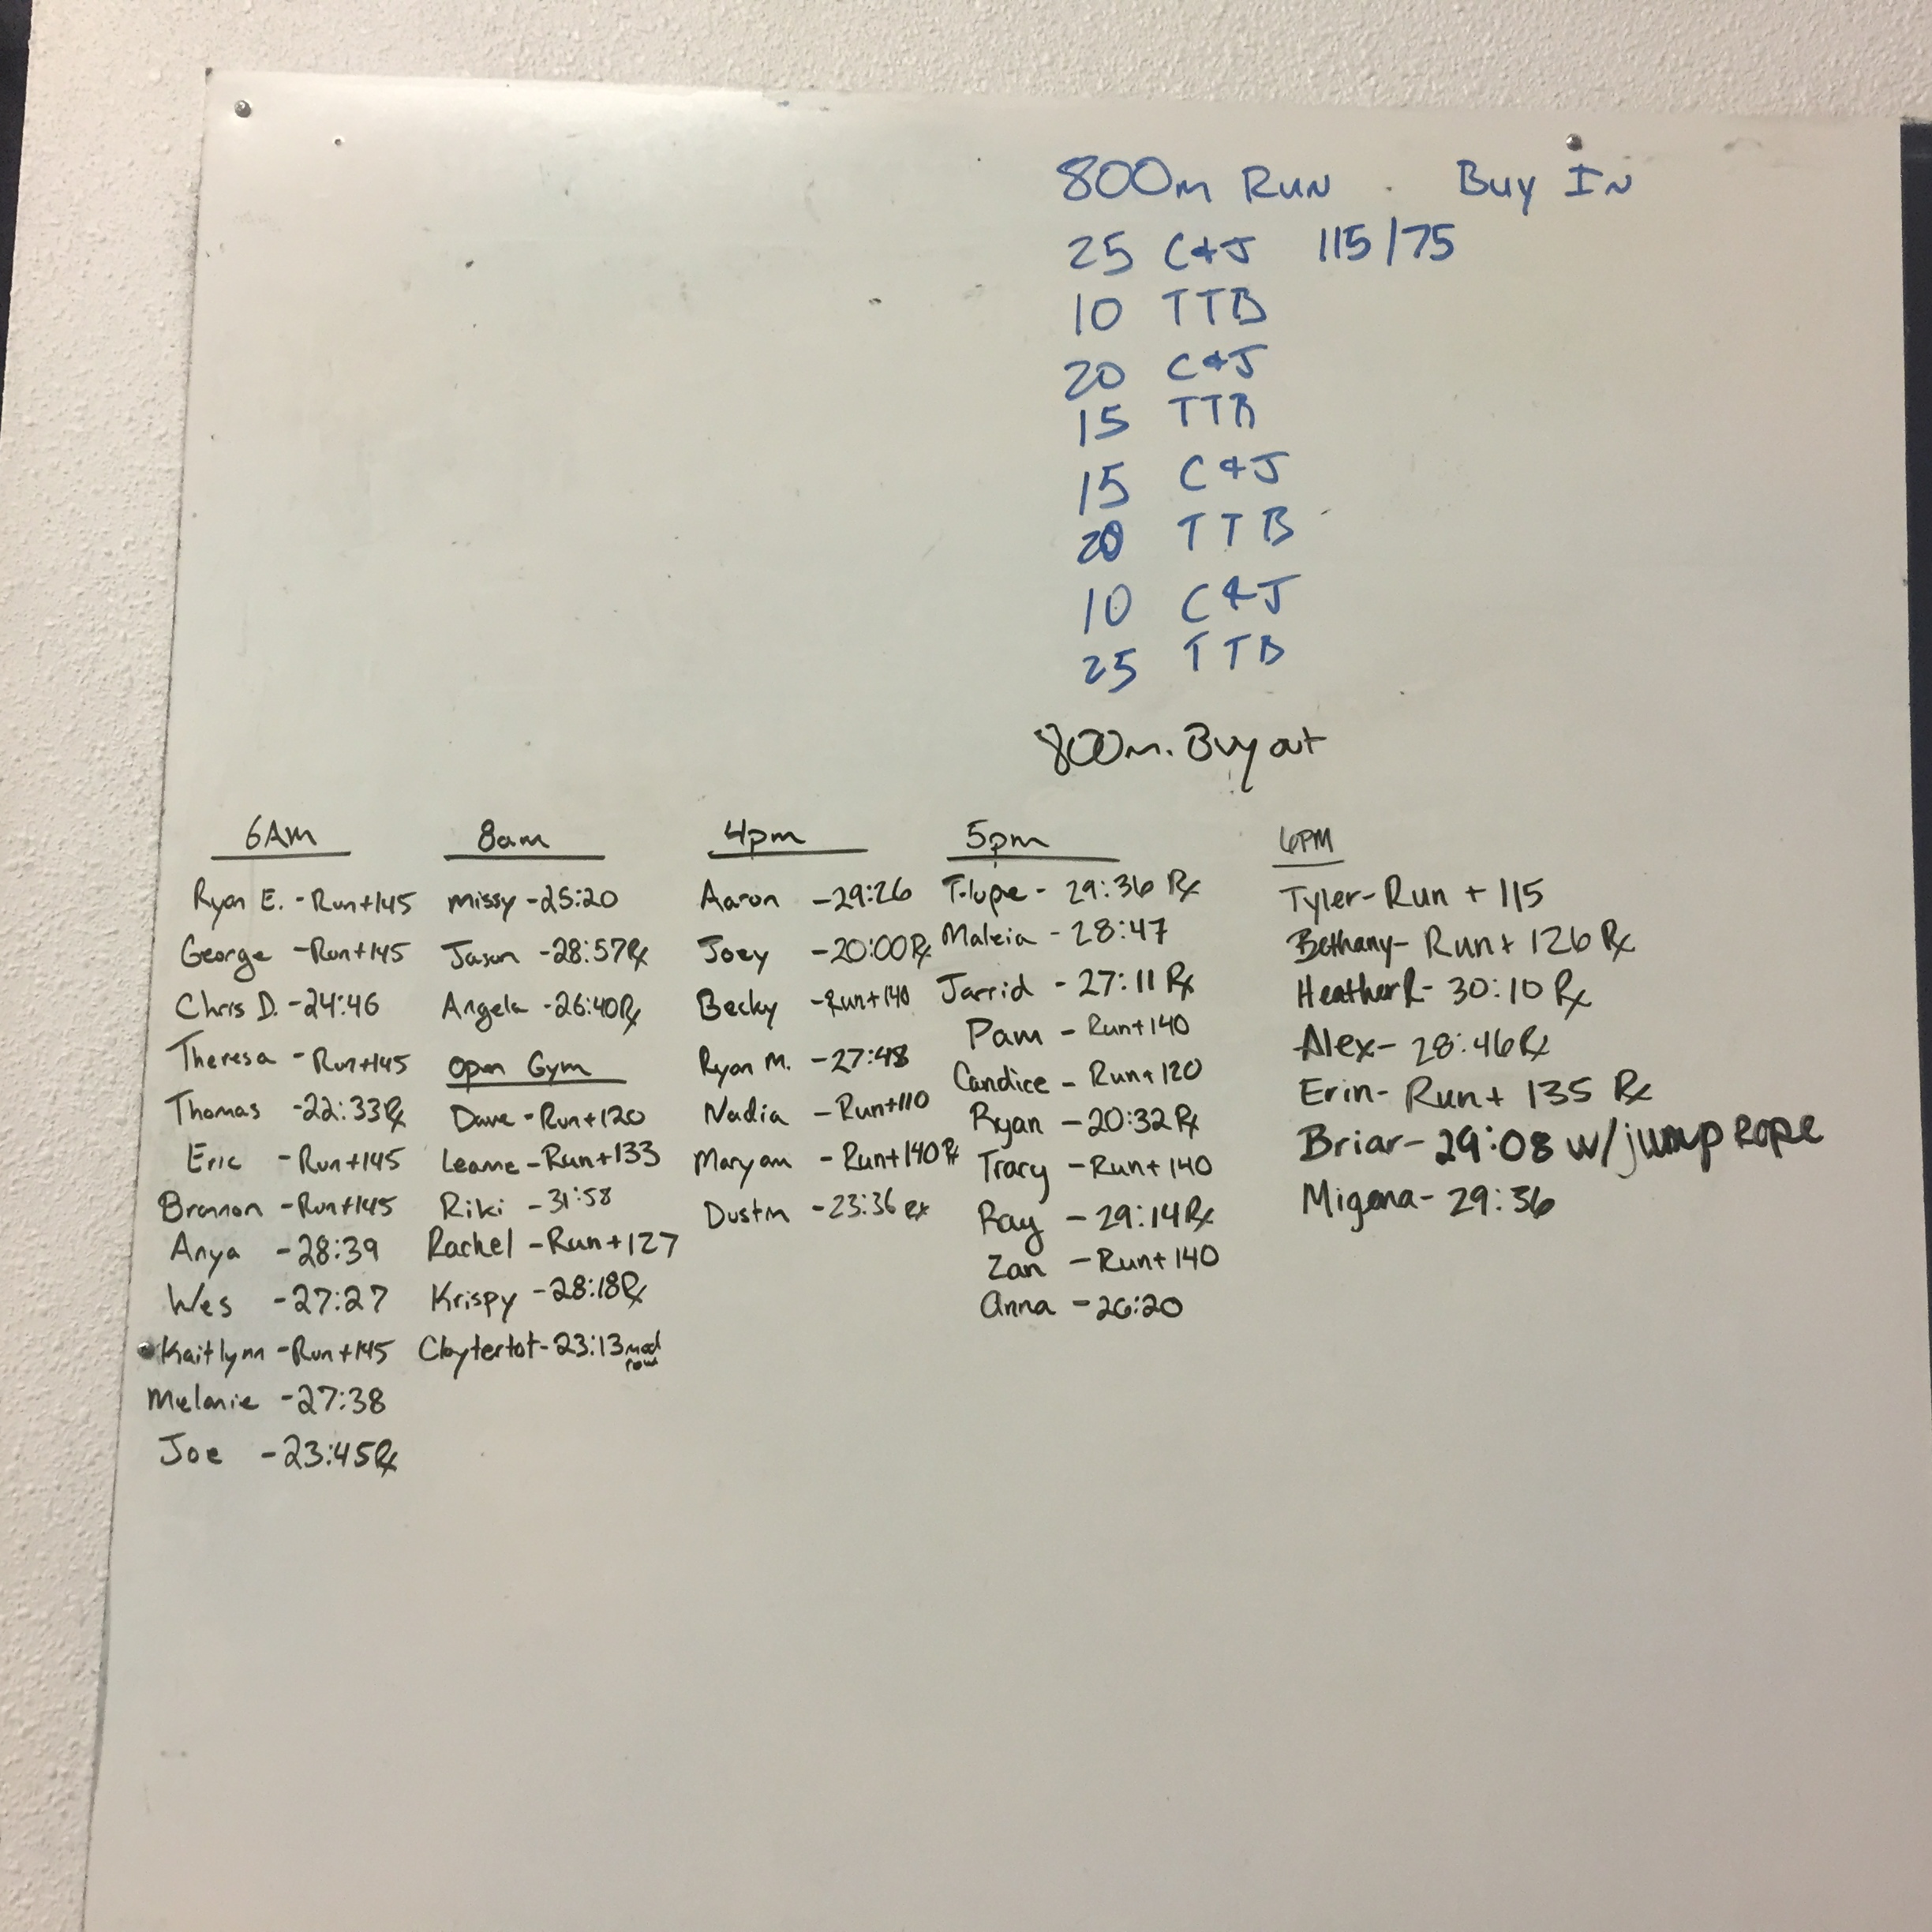 800m Run Buy In
25 C&J 115/75
10 TTB
20 C&J
15 TTB
15 C&J
20 TTB
10 C&J
25 TTB
800m. Buy out
6Am
Ryan E. - Run+145
George - Run+145
Chris D. - 24:46
Theresa - Run+145
Thomas - 22:33 Rx
Eric - Run+145
Brannon - Run+145
Anya - 28:39
Wes - 27:27
Kaitlynn - Run+145
Melanie - 27:38
Joe - 23:45 Rx
8am
missy - 25:20
Jason - 28:57 Rx
Angela - 26:40 Rx
Open Gym
Dave - Run+120
Leanne - Run+133
Riki - 31:58
Rachel - Run+127
Krispy - 28:18 Rx
Claytertot - 23:13 mod row
4pm
Aaron - 29:26
Joey - 20:00 Rx
Becky - Run+140
Ryan M. - 27:48
Nadia - Run+110
Maryam - Run+140 Rx
Dustin - 23:36 Rx
5pm
T-lupe - 29:36 Rx
Maleia - 28:47
Jarrid - 27:11 Rx
Pam - Run+140
Candice - Run+120
Ryan - 20:32 Rx
Tracy - Run+140
Ray - 29:14 Rx
Zan - Run+140
Anna - 26:20
6PM
Tyler - Run + 115
Bethany - Run + 126 Rx
Heather R - 30:10 Rx
Alex - 28:46 Rx
Erin - Run + 135 Rx
Briar - 29:08 w/jump rope
Migena - 29:56